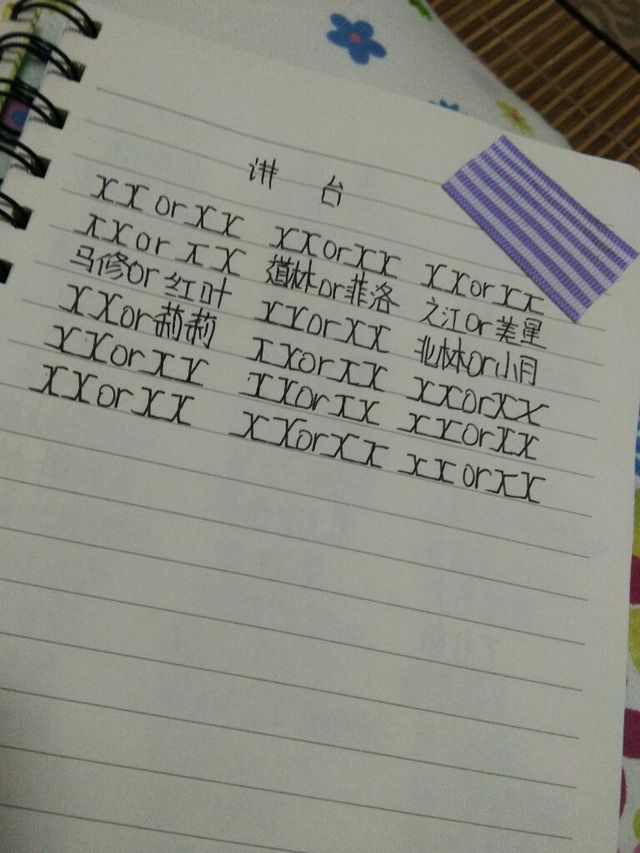 讲 台
XX or XX XXorXX XXorXX
XXor XX 道林or菲洛 之江or美星
马修or红叶 XXorXX 北林or小月
XXor莉莉 XXorXX XXorXX
XXorXX XXorXX XXorXX
XXorXX XXorXX XXorXX